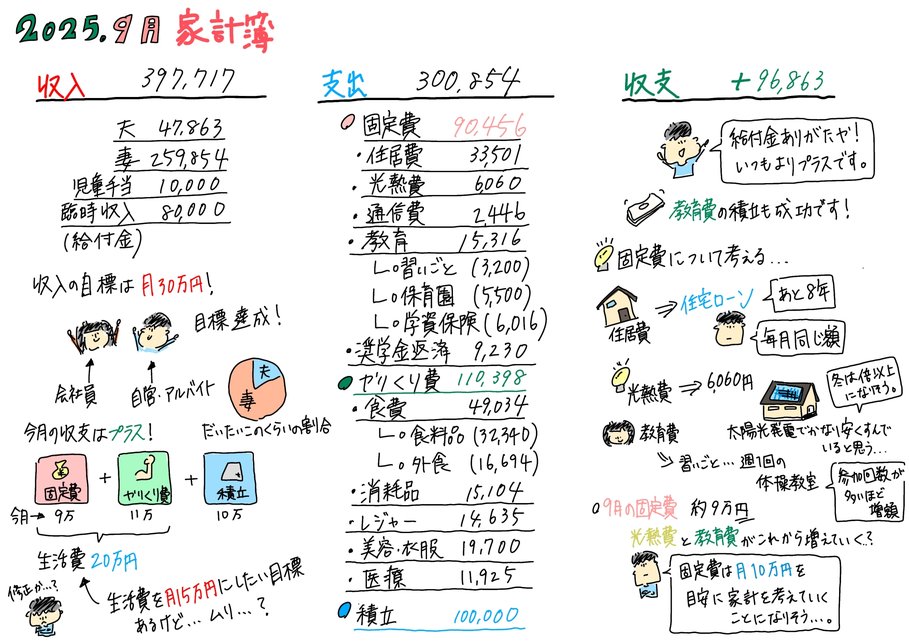 2025.9月 家計簿
収入 397,717
夫 47,863
妻 259,854
児童手当 10,000
臨時収入 80,000
(給付金)
収入の目標は月30万円!
目標達成!
会社員
自営・アルバイト
夫
妻
だいたいこのくらいの割合
今月の収支はプラス!
固定費 + やりくり費 + 積立
今月→ 9万 11万 10万
生活費20万円
修正か…?
生活費を月15万円にしたい目標
あるけど…ムリ…?
支出 300,854
固定費 90,456
・住居費 33,501
・光熱費 6060
・通信費 2,446
・教育 15,316
∟○習いごと (3,200)
∟○保育園 (5,500)
∟○学資保険 (6,016)
・奨学金返済 9,230
やりくり費 110,398
・食費 49,034
∟○食料品 (32,340)
∟○外食 (16,694)
・消耗品 15,104
・レジャー 14,635
・美容・衣服 19,700
・医療 11,925
積立 100,000
収支 +96,863
給付金ありがたや!
いつもよりプラスです。
教育費の積立も成功です!
固定費について考える…
住居費
⇒住宅ローン
あと8年
毎月同じ額
光熱費⇒6,060円
冬は倍以上
になりそう。
太陽光発電でかなり安くすんで
いると思う…
教育費
習いごと…週1回の
体操教室
参加回数が
多いほど
増額
○9月の固定費 約9万円
光熱費と教育費がこれから増えていく…?
固定費は月10万円を
目安に家計を考えていく
ことになりそう…。